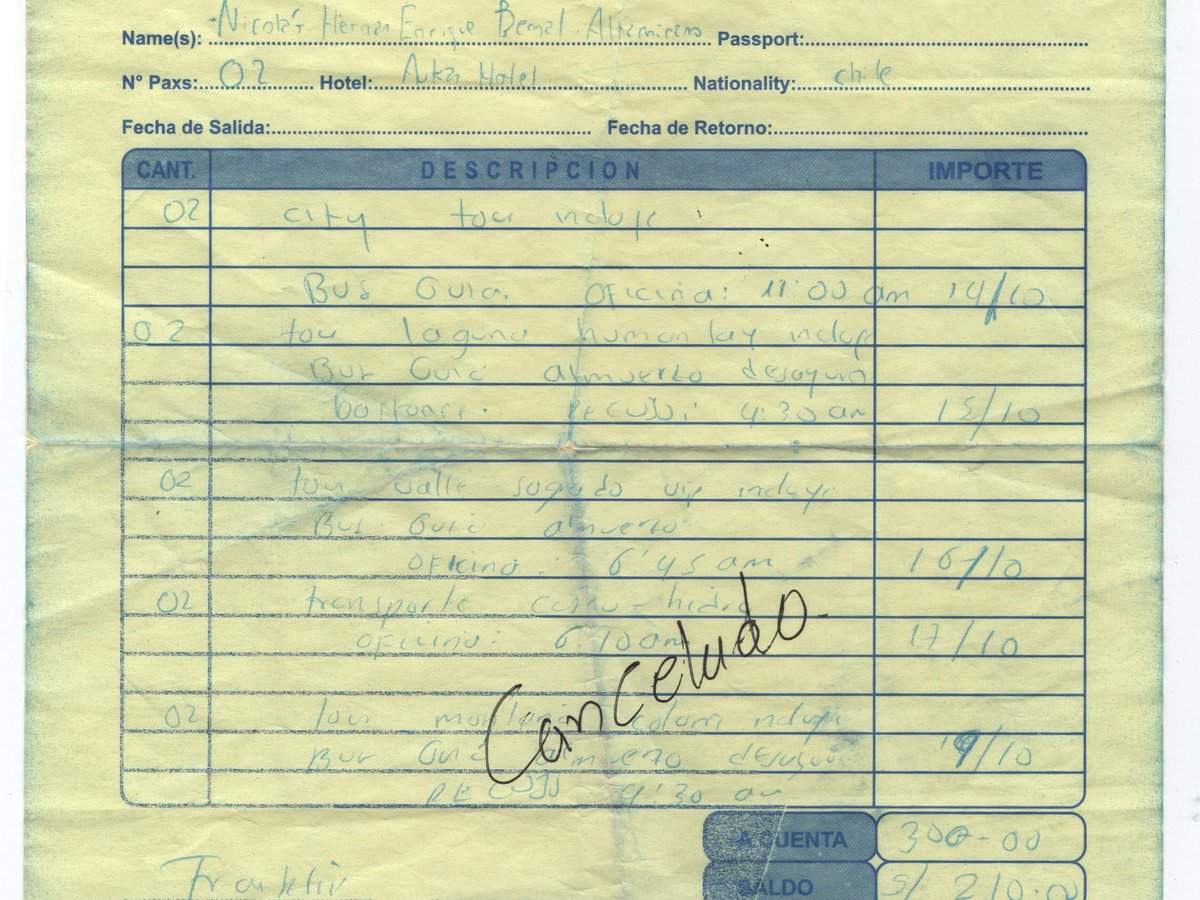 Name(s): Nicolás Hernan Enrique Bernal Altamirano Passport:
N° Paxs: 02 Hotel: Hotel Nationality: chile
Fecha de Salida: Fecha de Retorno:
CANT. DESCRIPCION IMPORTE
02 city tou incluye
Bus Guia. oficina: 11:00 am 14/10
02 tou laguna humantay incluye
Bus Guia almuerzo desayuno
bastones. RECOJO: 4:30 am 15/10
02 tour valle sagrado vip incluye
Bus Guia almuerzo
oficina: 6:45 am 16/10
02 transporte cusco - hidro
oficina: 6:10 am 17/10
Cancelado.
02 tour montaña colores incluye
Bus Guia almuerzo desayuno 19/10
RECOJO 4:30 am
A CUENTA 300-00
Franklin SALDO S/ 210.00